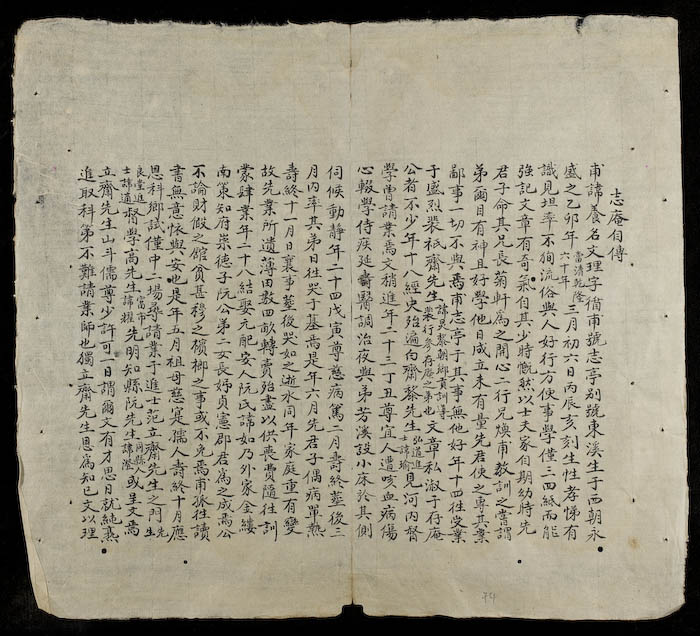 志庵自傳
甫諱養名文理字猶甫號志亭別號東溪生于西朝永
盛之乙卯年當清乾隆六十年三月初六日丙辰亥刻生性孝悌有
識見坦率不狥流俗與人好行方便事學僅三四紙而能
強記文章有奇氣自其少時慨然以士夫家自期幼時先
君子命其兄長菊軒爲之開心二行兄煥甫教訓之嘗謂
弟爾目有神且好學他日成立未有量先君使之專其業
鄙事一切不與焉甫志亭于其事無他好年十四徃受業
于盛烈裴祇齋先生諱黎朝鄉貢訓導裴行參存庵之弟也文章私淑于存庵
公者不少年十八經史殆遍向齋黎先生弘道進士諱瑜見河内督
學曾請業焉文稍進年二十三丁丑尊宜人遘咳血病傷
心輟學侍疾延醫調治夜與弟芳溪設小床於其側
伺候動靜年二十四戊寅尊慈病篤二月壽終葬後三
月内率其弟日徃哭于墓焉是年六月先君子偶病單熱
壽終十一月日襄事葬後哭如之逝水同年家庭重有變
故先業所遺薄田数四畝轉賣殆盡以供喪費隨徃訓
蒙肄業年二十八結娶元配安人阮氏諱如乃外家金縷
南策知府崇德子阮公第二女長妤貞憲郡君爲之成焉公
不論財假之館貧甚穆之檳榔之事或不免焉甫孤徃讀
書無意與安也是年五月祖母慈寔孺人壽終十月應
恩科鄉試僅中二場尋請業于進士范立齋先生之門先生
良堂進士諱適督學高先生富市諱耀先明知縣阮先生同縣諱瀅或坐文焉
立齋先生山斗儒尊少許可一日謂爾文有才思目就純熟
進取科第不難請業師也獨立齋先生恩爲知已文以理
74